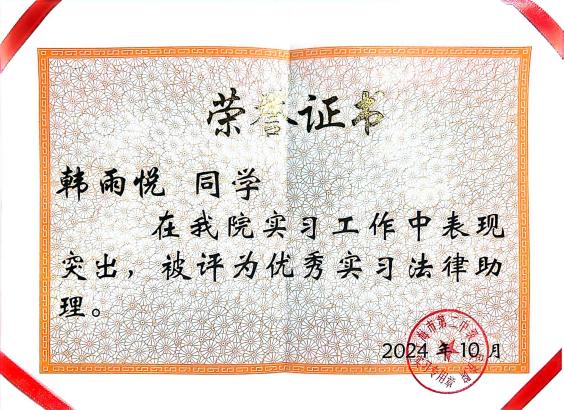 荣誉证书
韩雨悦 同学
在我院实习工作中表现
突出，被评为优秀实习法律助
理。
2024 年 10 月
海市第二中
实习专用章